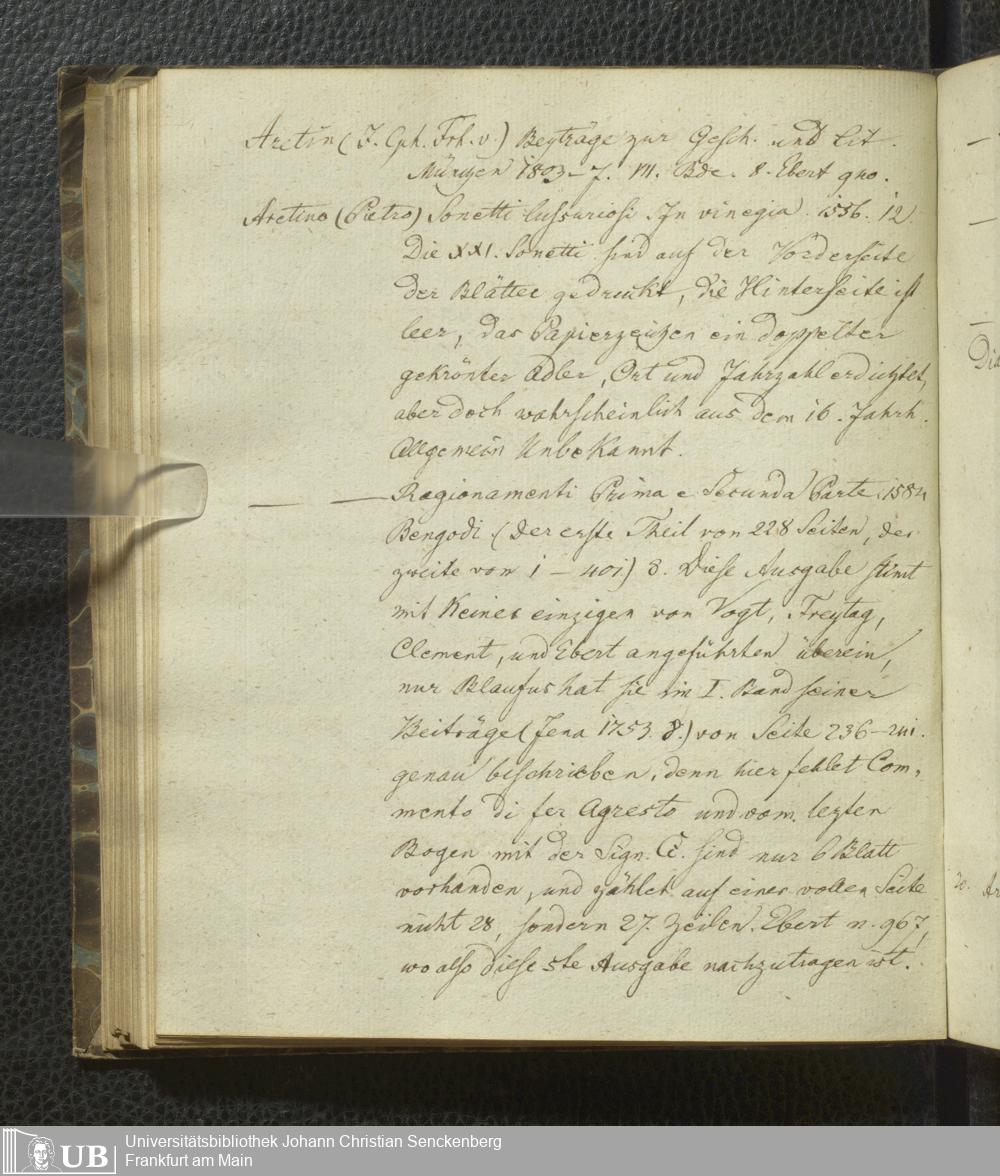 Aretin (J. Cph. Frh. v.) Beyträge zur Gesch. und Lit.
München 1803–7. VII. Bde. 8. Ebert 940.
Aretino (Pietro) Sonetti lussuriosi In vinegia. 1556. 12.
Die XXI. Sonetti sind auf der Vorderseite
der Blätter gedruckt, die Hinterseite ist
leer, das Papierzeichen ein doppelter
gekrönter Adler, Ort und Jahrzahl erdichtet,
aber doch wahrscheinlich aus dem 16. Jahrh.
Allgemein Unbekannt.
— — Ragionamenti Prima e Secunda Parte. 1584
Bengodi. (Der erste Theil von 228 Seiten, der
zweite von 1 – 401) 8. Diese Ausgabe stimt
mit Keiner einzigen von Vogt, Freytag,
Clement, und Ebert angeführten überein,
nur Blaufus hat sie im I. Band seiner
Beiträge (Jena 1753. 8.) von Seite 236–241.
genau beschrieben, denn hier fehlet Com,
mento di ser Agresto und vom lezten
Bogen mit der Sign. Cc. sind nur 6 Blatt
vorhanden, und zählet auf einer vollen Seite
nicht 28, sondern 27. Zeilen. Ebert n. 967,
wo also diese 5te Ausgabe nachzutragen ist.
Dia
20. Ar
UB Universitätsbibliothek Johann Christian Senckenberg
Frankfurt am Main